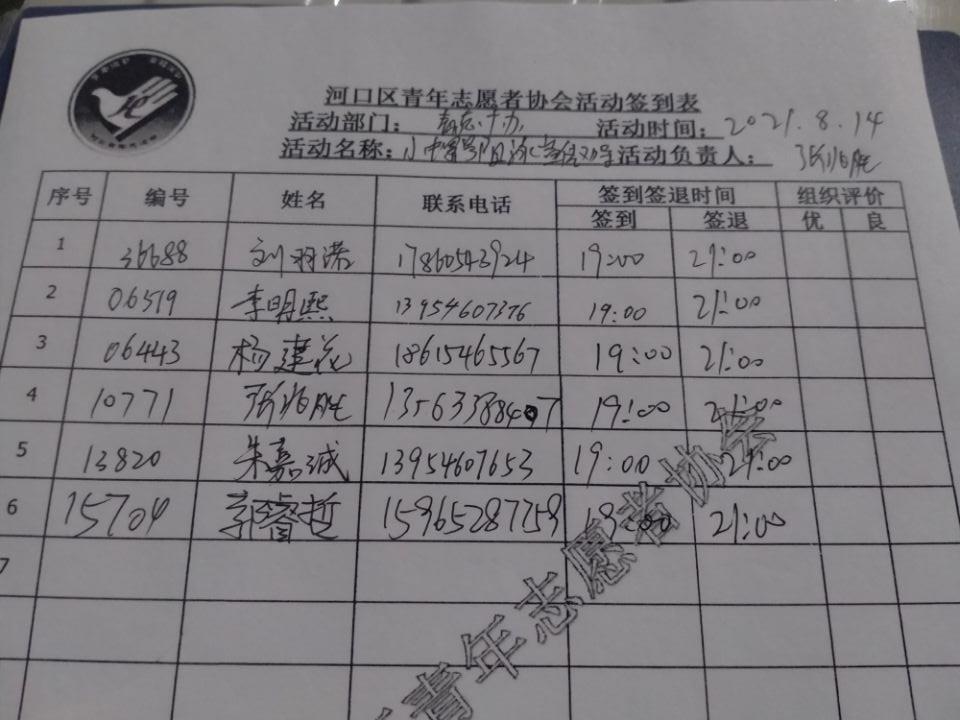 河口区青年志愿者协会活动签到表
活动部门： 活动时间：2021.8.14
活动名称： 活动负责人：张兆胜
序号 编号 姓名 联系电话 签到签退时间 组织评价
签到 签退 优 良
1 36688 刘羽诺 17860543924 19:00 21:00
2 06519 李明熙 13954607376 19:00 21:00
3 06443 杨建花 18615465567 19:00 21:00
4 10771 张兆胜 13563388407 19:00 21:00
5 13820 朱嘉诚 13954607653 19:00 21:00
6 15704 郭睿哲 15965287759 19:00 21:00
7
青年志愿者协会